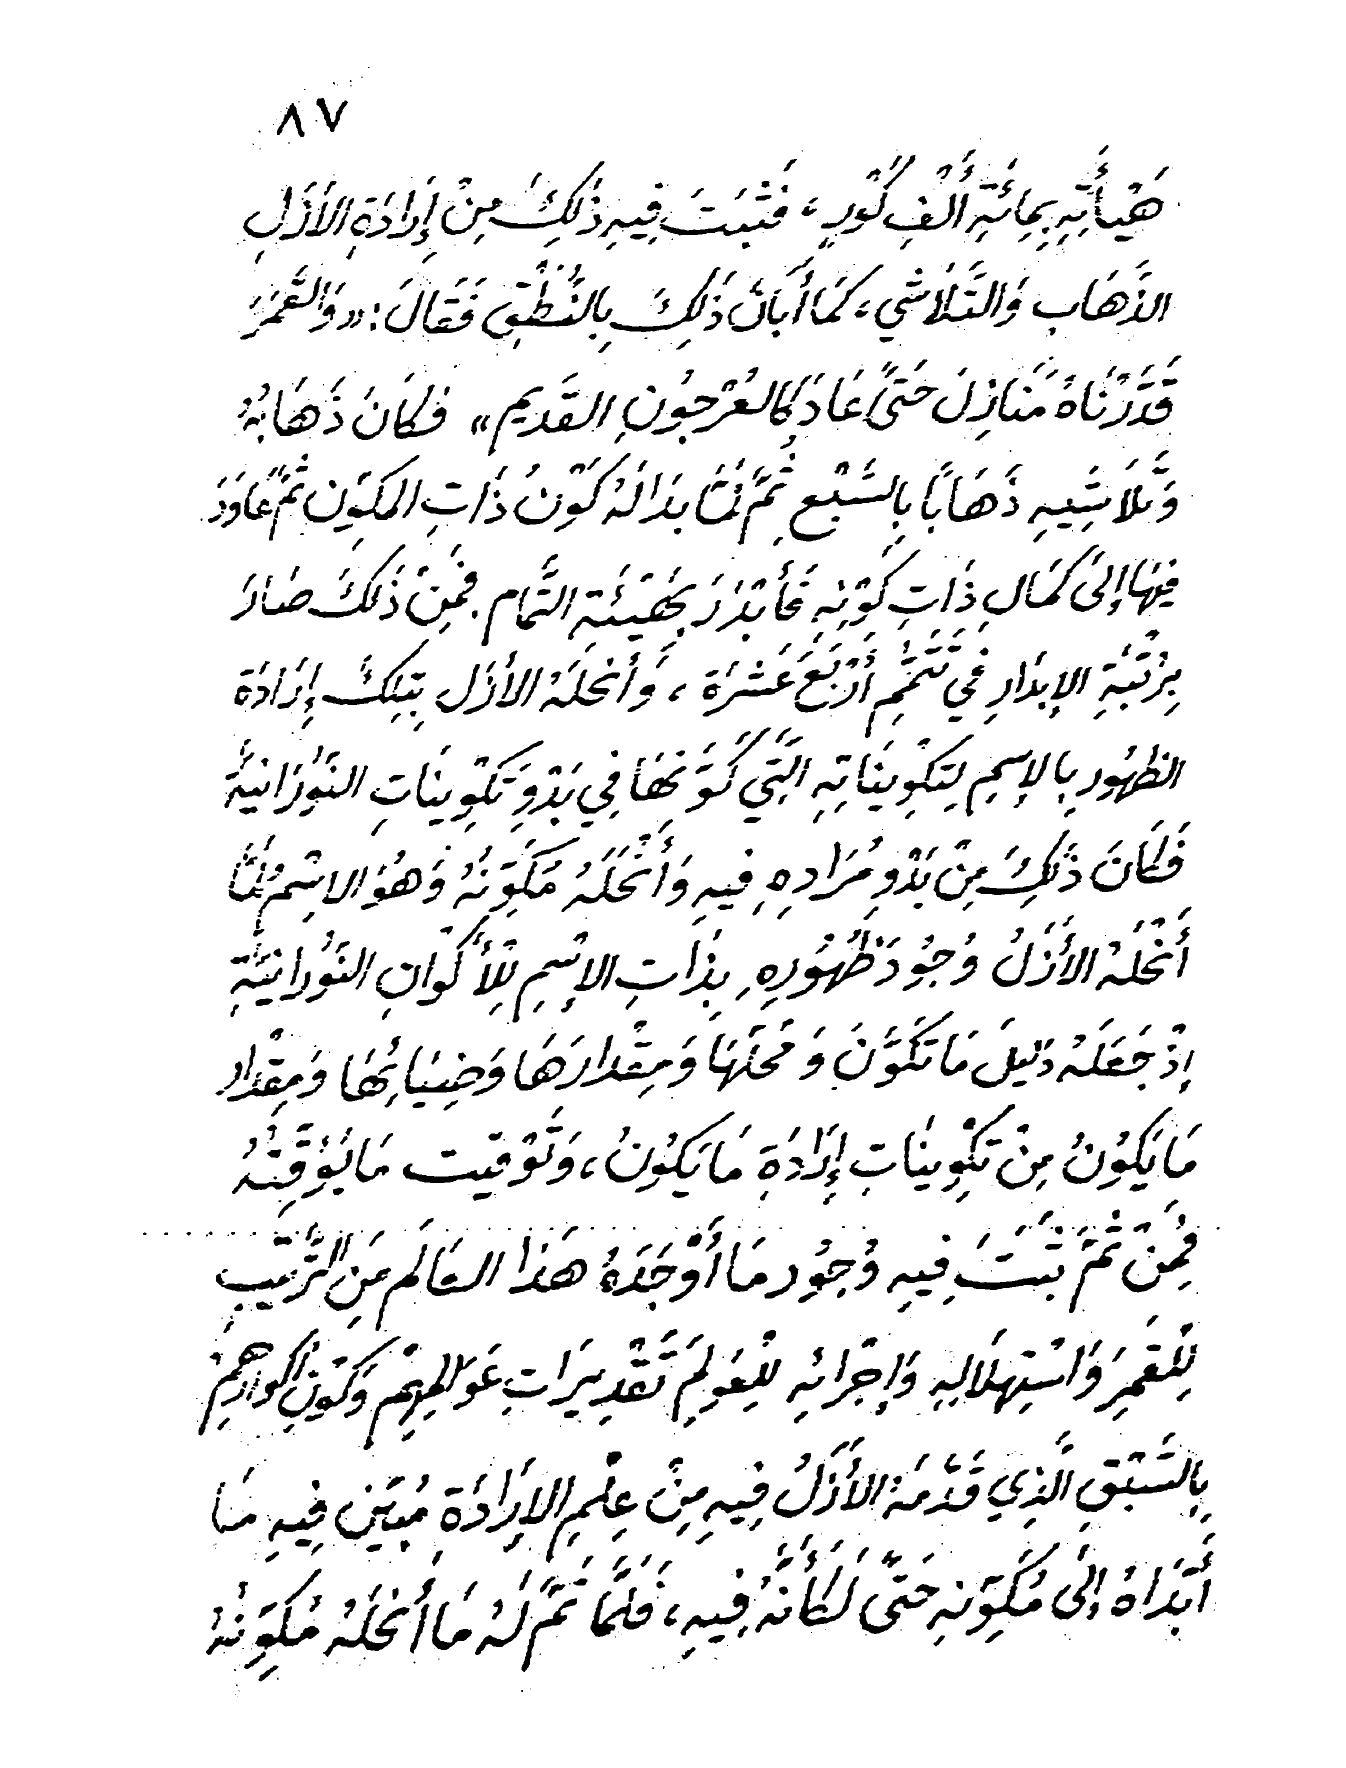 ٨٧
هَيْأَتِهِ بِمِائَةِ أَلْفِ كَوْرٍ، فَثَبَتَ فِيهِ ذٰلِكَ مِنْ إِرَادَةِ الأَزَلِ
الذَّهَابِ وَالتَّلَاشِي، كَمَا أَبَانَ ذٰلِكَ بِالنُّطْقِ فَقَالَ: «وَالقَمَرَ
قَدَّرْنَاهُ مَنَازِلَ حَتَّىٰ عَادَ كَالعُرْجُونِ القَدِيمِ» فَكَانَ ذَهَابُهُ
وَتَلَاشِيهِ ذَهَابًا بِالسَّبْعِ ثُمَّ لَمَّا بَدَا لَهُ كَوْنُ ذَاتِ المكَوِّنِ ثُمَّ عَاوَدَ
فِيهَا إِلىَ كَمَالِ ذَاتِ كَوْنِهِ فَأَبْدَرَ بِهَيْئَةِ التَّمَامِ. فَمِنْ ذٰلِكَ صَارَ
بِرُتْبَةِ الإِبدَارِ فِي تَتَمُّمِ أَرْبَعَ عَشْرَة، وَأَنحَلَهُ الأَزَل بِتِلكَ إِرَادَة
الظهُور بِالإِسمِ لِتَكْوِينَاتِهِ الَّتِي كَوَّنَهَا فِي بَدْوِ تَكْوِينَاتِ النُّورَانِيَّة
فَكَانَ ذٰلِكَ مِنْ بَدْوِ مُرَادِهِ فِيهِ وَأَنْحَلَهُ مُكَوِّنُهُ وَهُوَ الاسْمُ لَمَّا
أَنْحَلَهُ الأَزَلُ وُجُودَ ظُهُورِهِ بِذَاتِ الإِسْمِ لِلأَكْوَانِ النُّورَانِيَّةِ
إِذْ جَعَلَهُ دَلِيلَ مَا تَكَوَّنَ وَمَحَلَّهَا وَمِقْدَارَهَا وَضِيَائَهَا وَمِقْدَار
مَا يَكُونُ مِنْ تَكْوِينَاتِ إِرَادَةِ مَا يَكُونُ، وَتَوْقِيت مَا يُؤَقِّتُهُ
فَمِنْ ثَمَّ ثَبَتَ فِيهِ وُجُودِ مَا أَوْجَدَهُ هَذَا العَالَمِ مِنَ التَّرْتِيبِ
لِلقَمَرِ وَاسْتِهلَالِهِ وَإِجْرَائِهِ لِلْعَوَالِمَ تَقْدِيرَاتِ عَوَالِمِهِمْ وَكَوْنِ أَكْوَارِهِمْ
بِالسَّبْقِ الَّذِي قَدَّمَهُ الأَزَلُ فِيهِ مِنْ عِلْمِ الإِرَادَة مُبَيِّنٍ فِيهِ مَا
أَبْدَاهُ إِلَى مُكَوِّنِهِ حَتَّىٰ لَكَأَنَّهُ فِيهِ، فَلَمَّا تَمَّ لَهُ مَا أَنحَلَهُ مُكَوِّنُهُ